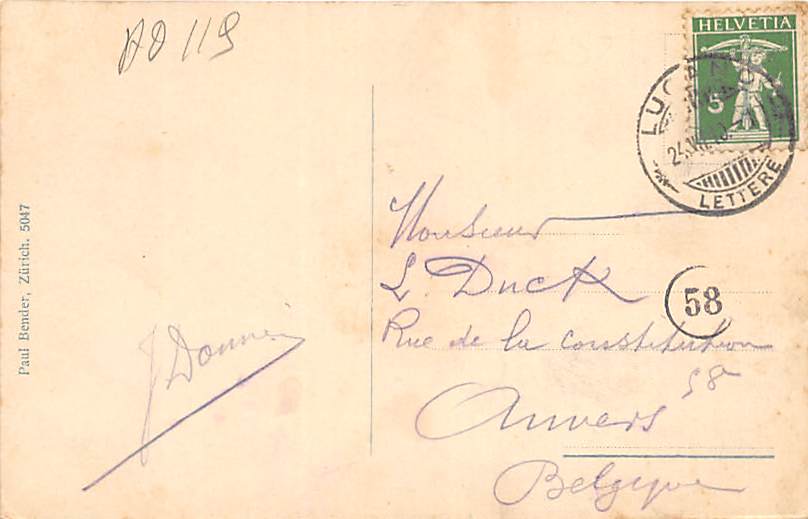 AD 119
HELVETIA
5
LUGANO
LETTERE
Paul Bender, Zürich. 5047
Monsieur
L. Duck
58
Rue de la Constitution
58
Anvers
Belgique
J Donner